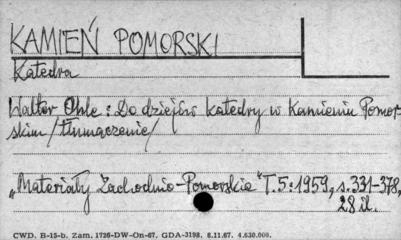 KAMIEŃ POMORSKI
Katedra
Walter Ohle : Do dziejów katedry w Kamieniu Pomor-
skim /tłumaczenie/
„Materiały Zachodnio-Pomorskie" T.5: 1959, s. 331-378,
28 il.
CWD. B-15-b. Zam. 1726-DW-On-67. GDA-3198. 8.11.67. 4.630.000.